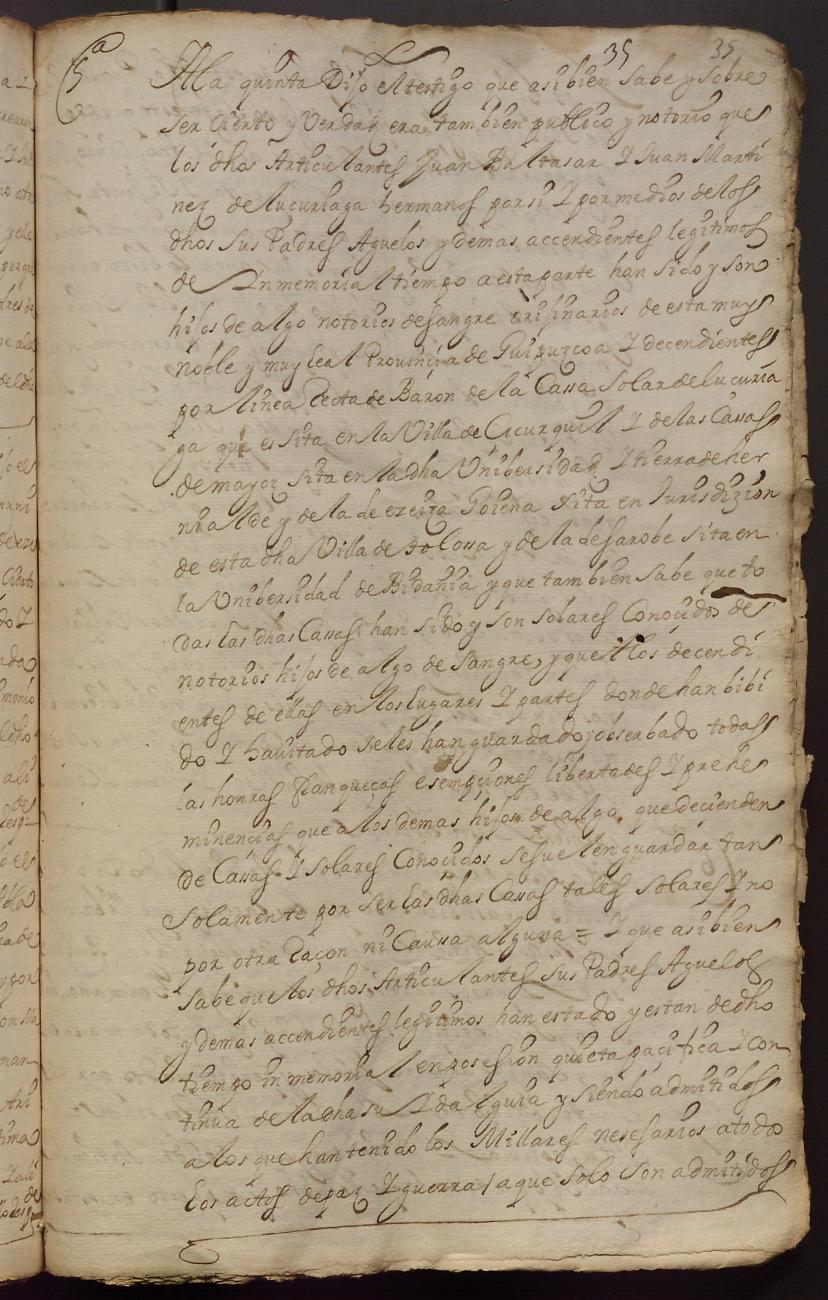 35 35
5ª
A la quinta Dijo el testigo que asi bien sabe y sobre
ser Cierto y Verdad era tambien publico y notorio que
los dhos Articulantes Juan Baltasar Y Juan Marti
nez de lucuriaga hermanos por si Y por medios de los
dhos sus Padres Aguelos y demas accendientes legitimos
de Inmemorial tiempo a esta parte han sido y son
hijos de algo notorios de sangre orijinarios de esta muy
noble y muy leal Provinçia de Guipuzcoa Y decendientes
por linea Recta de Baron de la Cassa Solar de lucuria
ga que es sita en la Villa de Cicurquil Y de las Cassas
de mayoz sita en la dha Unibersidad Y tierra de her
nialde y de la de ezeiza Goiena sita en Jurisdizion
de esta dha Villa de tolossa y de la de sarobe sita en
la Unibersidad de Bidania y que tambien sabe que to
das las dhas Cassas han sido y son solares Conocidos de
notorios hijos de algo de sangre, y que a los decendi
entes de ellas en los lugares Y partes donde han bibi
do Y hauitado se les han guardado y obserbado todas
las honras franqueças esempçiones libertades Y prehe
minencias que a los demas hijos de algo que decienden
de Cassas Y solares Conocidos se suelen guardar tan
solamente por ser las dhas Cassas tales solares Y no
por otra Raçon ni Caussa alguna = Y que asi bien
sabe que los dhos Articulantes sus Padres Aguelos
y demas accendientes legitimos han estado y estan de dho
tiempo inmemorial en posesion quieta paçifica Y con
tinua de la dha su Ydalguia y siendo admitidos
a los que han tenido los Millares nesesarios a todo
los actos de paz Y guerra / a que solo son admitidos